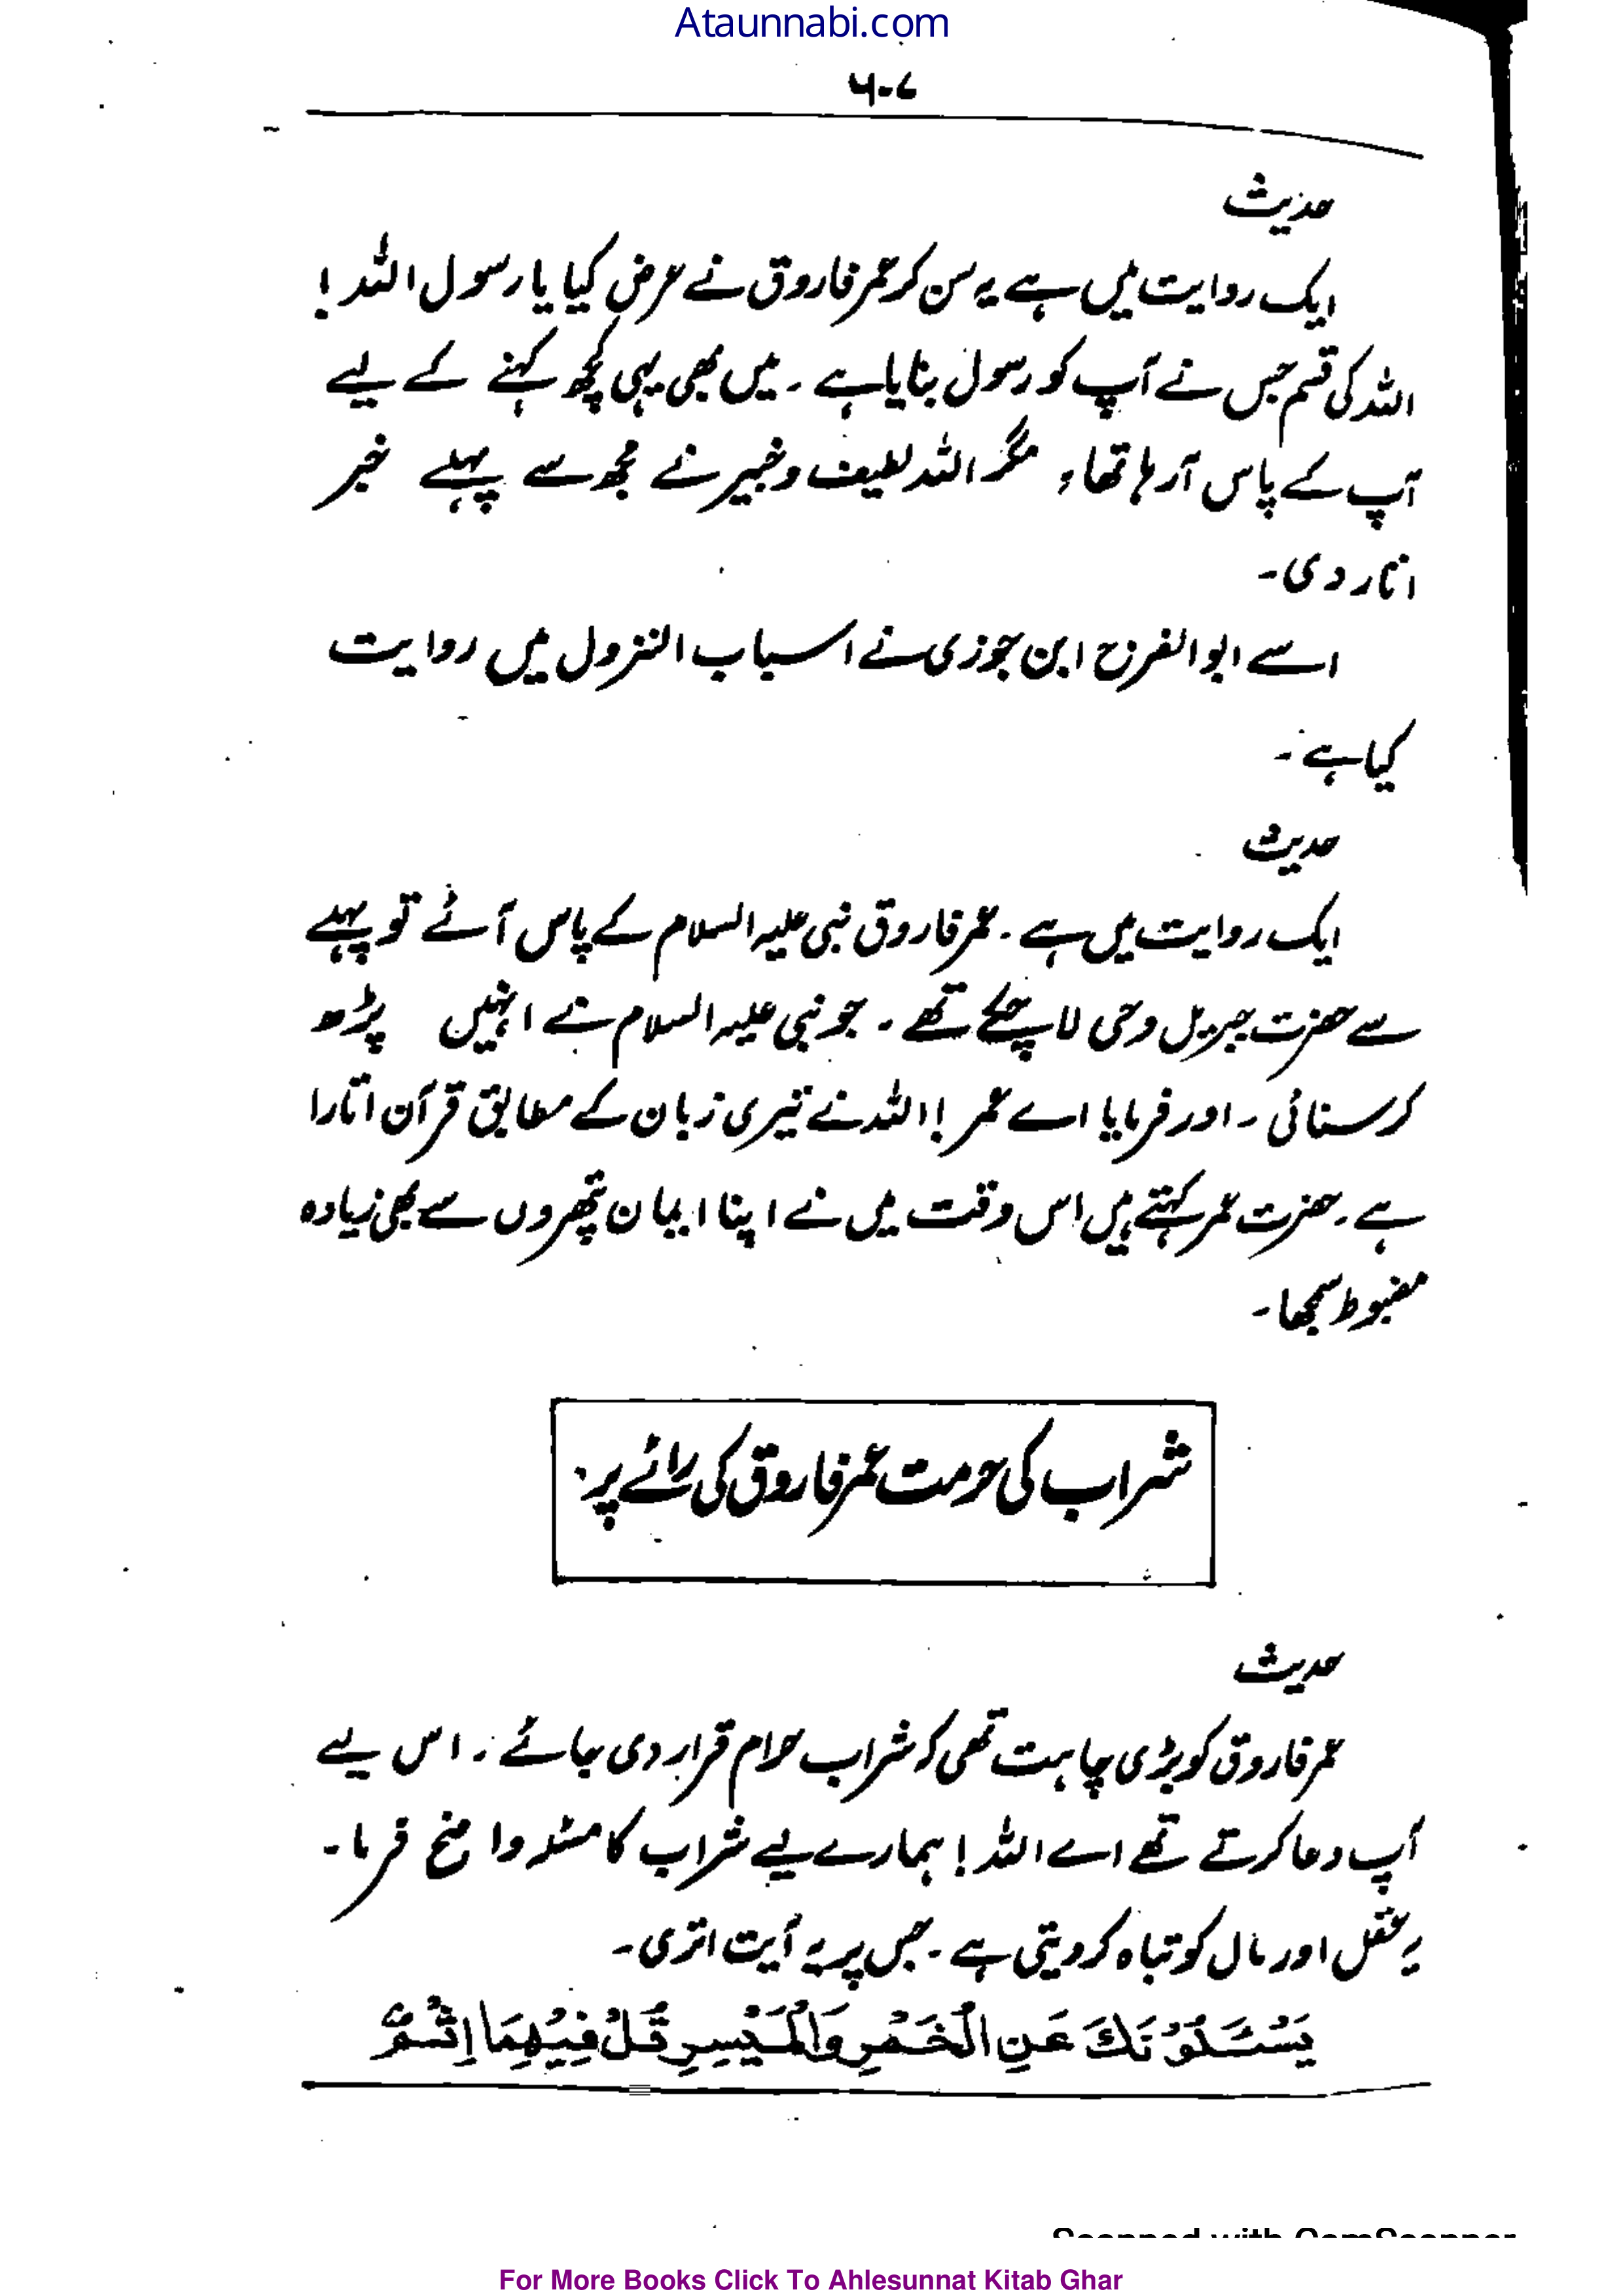 Ataunnabi.com
۵۰۷
حدیث
ایک روایت میں ہے یہ سن کر عمر فاروق نے عرض کیا یا رسول اللہ !
اللہ کی قسم جس نے آپ کو رسول بنایا ہے ۔ میں بھی یہی کچھ کہنے کے لیے
آپ کے پاس آرہا تھا، مگر اللہ لطیف و خبیر نے مجھ سے پہلے خبر
اتار دی۔
اسے ابوالفرج ابن جوزی نے اسباب النزول میں روایت
کیا ہے ۔
حدیث
ایک روایت میں ہے ۔ عمر فاروق نبی علیہ السلام کے پاس آئے تو پہلے
سے حضرت جبریل وحی لاچکے تھے ۔ جو نبی علیہ السلام نے انہیں پڑھ
کر سنائی ۔ اور فرمایا اے عمر ! اللہ نے تیری زبان کے مطابق قرآن اتارا
ہے ۔ حضرت عمر کہتے ہیں اس وقت میں نے اپنا ایمان پتھروں سے بھی زیادہ
مضبوط سمجھا۔
شراب کی حرمت عمر فاروق کی رائے پر
حدیث
عمر فاروق کو بڑی چاہت تھی کہ شراب حرام قرار دی جائے ۔ اس لیے
آپ دعا کرتے تھے اے اللہ ! ہمارے لیے شراب کا مسئلہ واضح فرما ۔
یہ عقل اور مال کو تباہ کر دیتی ہے ۔ جس پر یہ آیت اتری ۔
يَسْئَلُوْنَكَ عَنِ الْخَمْرِ وَالْمَيْسِرِ قُلْ فِيْهِمَا اِثْمٌ
Scanned with CamScanner
For More Books Click To Ahlesunnat Kitab Ghar